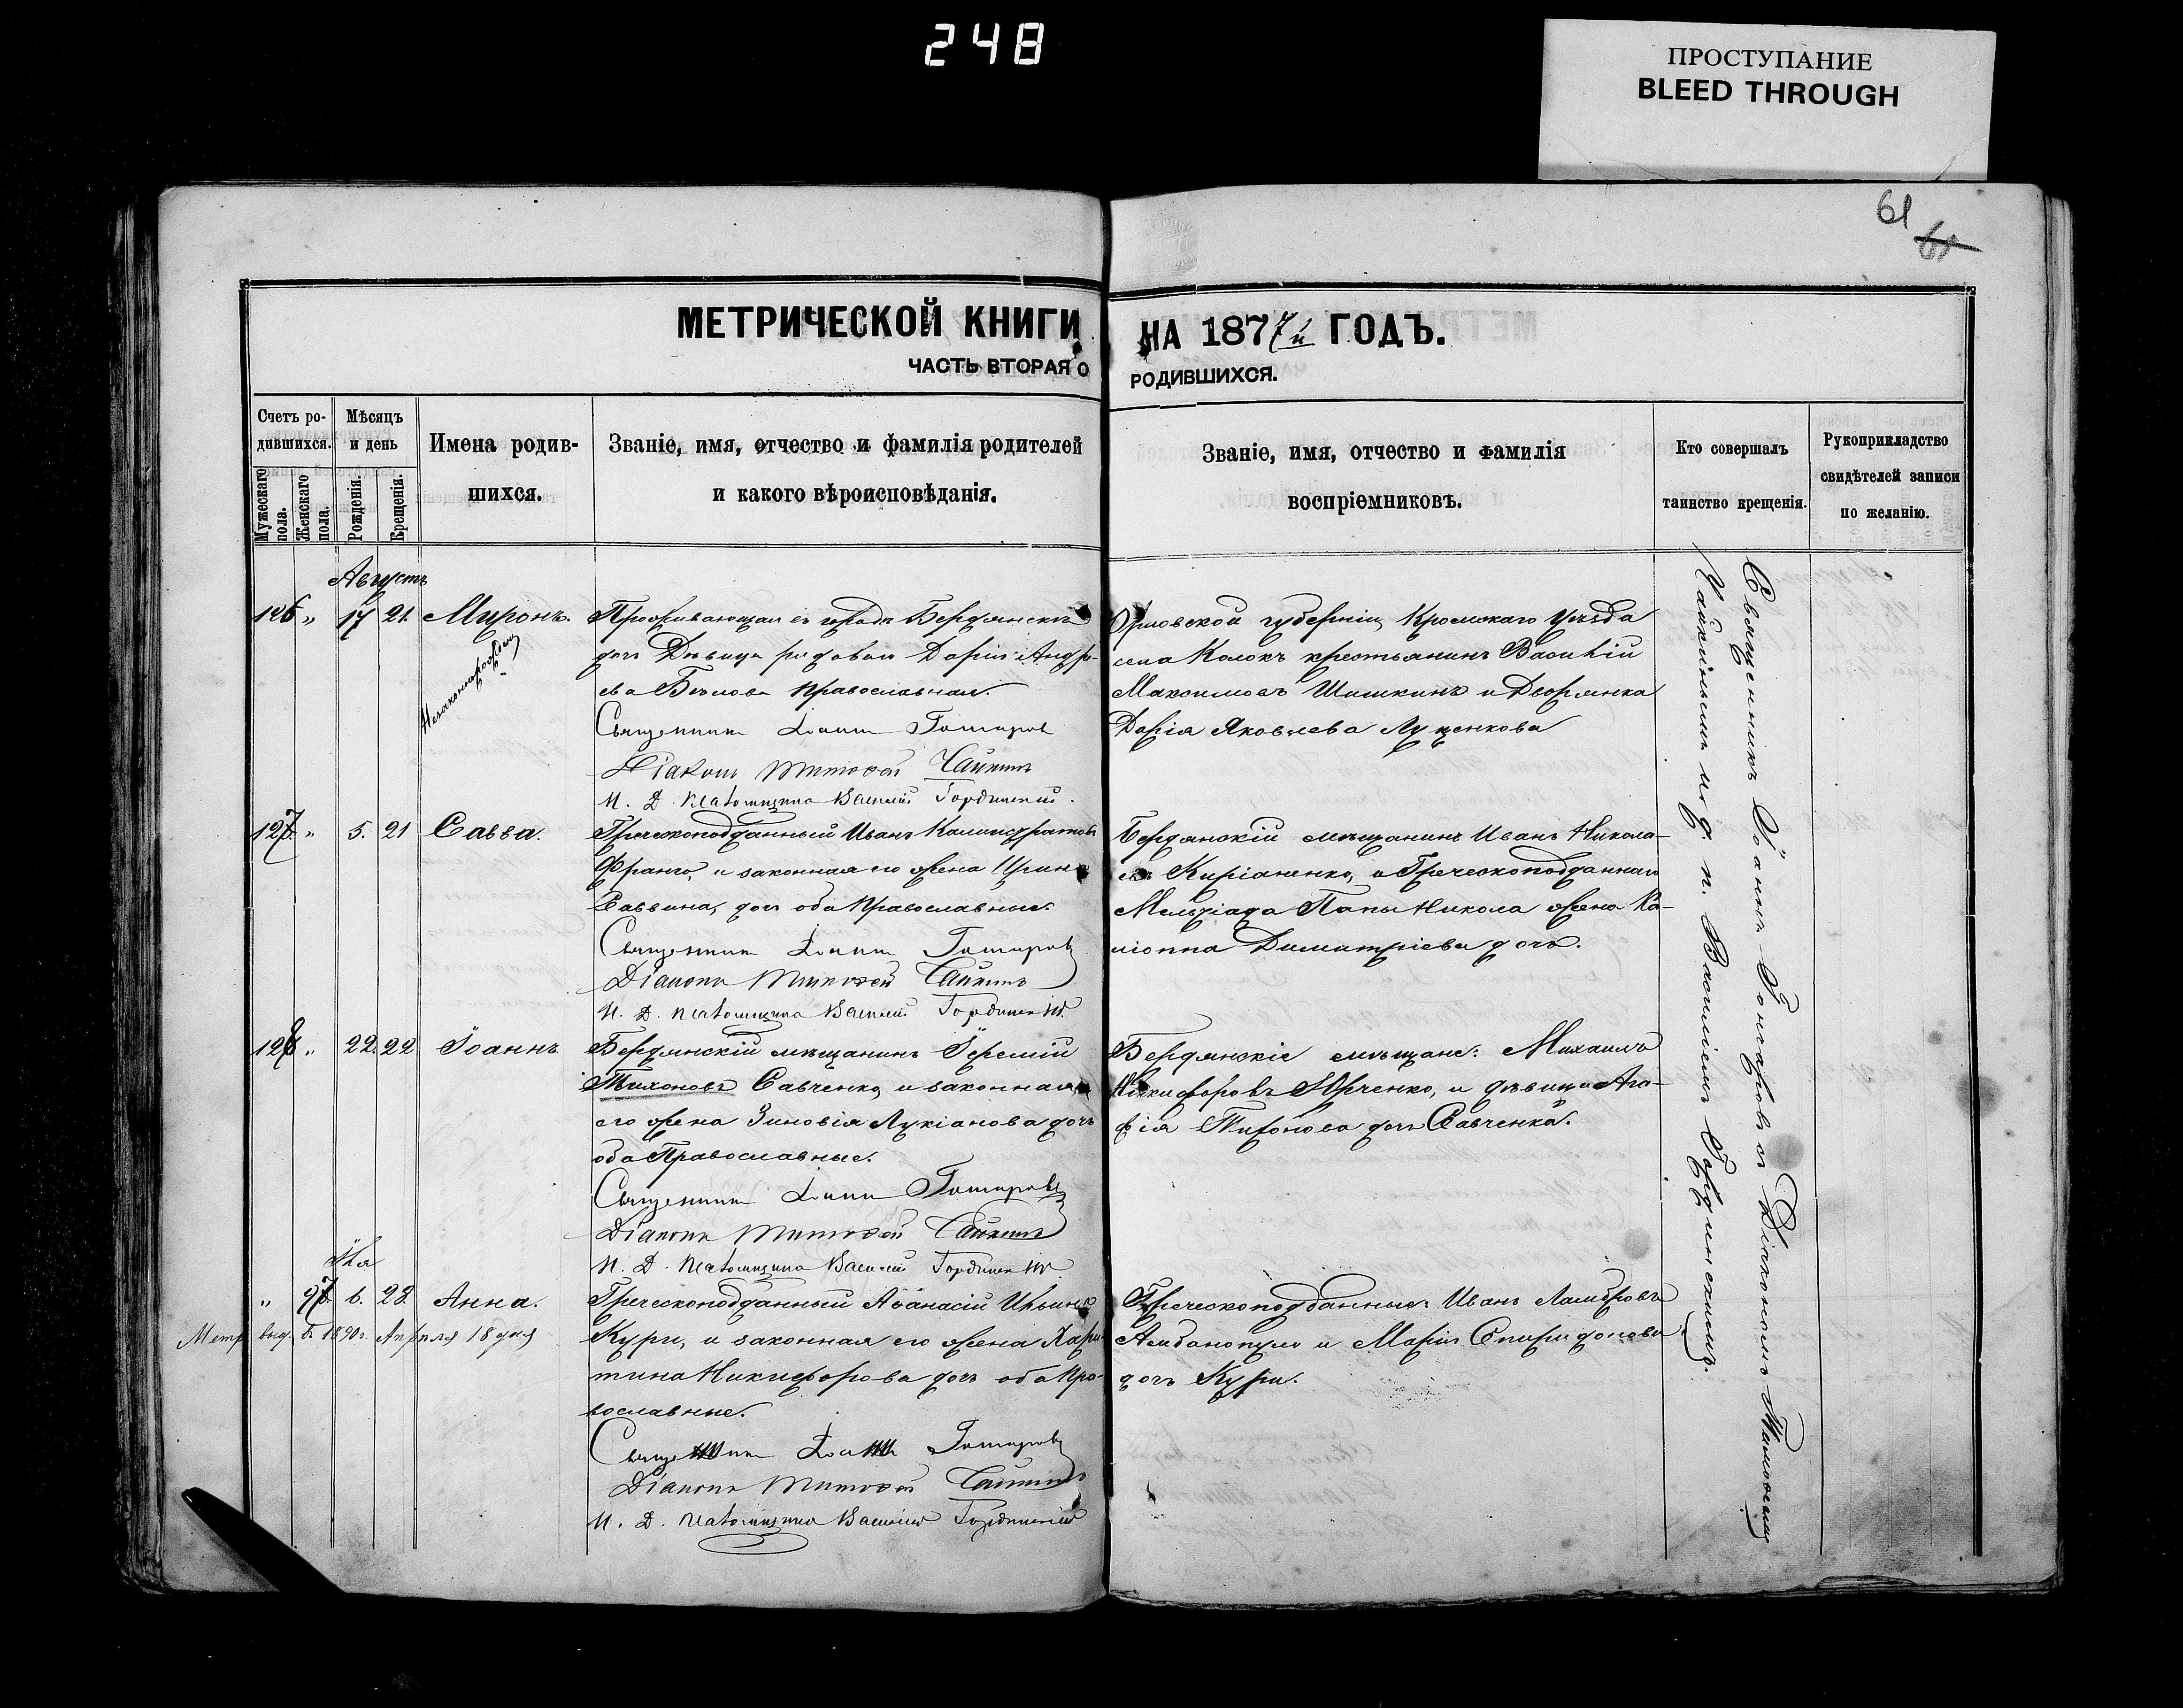 248
ПРОСТУПАНИЕ
BLEED THROUGH
61
61
МЕТРИЧЕСКОЙ КНИГИ НА 1877й ГОДЪ.
ЧАСТЬ ВТОРАЯ О РОДИВШИХСЯ.
Счетъ ро-
дившихся.
Мужескаго пола.
Женскаго пола.
Мѣсяцъ
и день
Рожденія.
Крещенія.
Имена родив-
шихся.
Званіе, имя, отчество и фамилія родителей
и какого вѣроисповѣданія.
Званіе, имя, отчество и фамилія
воспріемниковъ.
Кто совершалъ
таинство крещенія.
Рукоприкладство
свидѣтелей записи
по желанію.
Августъ
126 „ 17 21. Миронъ.
Незаконнорожден
Проживающая въ городѣ Бердянскѣ
дочь Дѣвица Дарія Андре-
ева Православная.
Священникъ Іоаннъ Гонгаровъ
Діаконъ Тимофей Чайкинъ
И. Д. Псаломщика Василій Гординскій.
Орловской губерніи, Кромскаго уѣзда
села Колокъ крестьянинъ Василій
Максимовъ Шишкинъ и Дворянка
Дарія Яковлева Луценкова
127. „ 5. 21 Савва.
Греческоподданный Иванъ
Франго, и законная его жена Ирина
Саввина, дочь оба Православные.
Священникъ Іоаннъ Гонгаровъ
Діаконъ Тимофей Чайкинъ
И. Д. Псаломщика Василій Гординскій
Бердянскій мѣщанинъ Иванъ Никола-
евъ Киріаненко, и Греческоподданнаго
Мельхіада Папы Никола жена Ка-
ліоппа Димитріева дочь.
128 „ 22. 22 Іоаннъ.
Бердянскій мѣщанинъ Іеремій
Тихоновъ Савченко, и законная
его жена Зиновія Лукіанова дочь
оба Православные.
Священникъ Іоаннъ Гонгаровъ
Діаконъ Тимофей Чайкинъ
И. Д. Псаломщика Василій Гординскій
Бердянскіе мѣщане: Михаилъ
Никифоровъ Юрченко, и дѣвица Ага-
фія Тихонова дочь Савченка.
„ 97. 6. 23. Анна.
Метр. выд. въ 1890 г. Апрѣля 18 дня
Греческоподданный Аѳанасій Ильинъ
Кури, и законная его жена Хари-
тина Никифорова дочь оба Пра-
вославные.
Священникъ Іоаннъ Гонгаровъ
Діаконъ Тимофей Чайкинъ
И. Д. Псаломщика Василій Гординскій
Греческоподданные: Иванъ Ламбровъ
Амбанопуло и Марія Спиридонова
дочь Кури.
Священникъ Іоаннъ Гонгаровъ съ Діакономъ Тимофеемъ
Чайкинымъ и и. д. п. Василіемъ Гординскимъ.